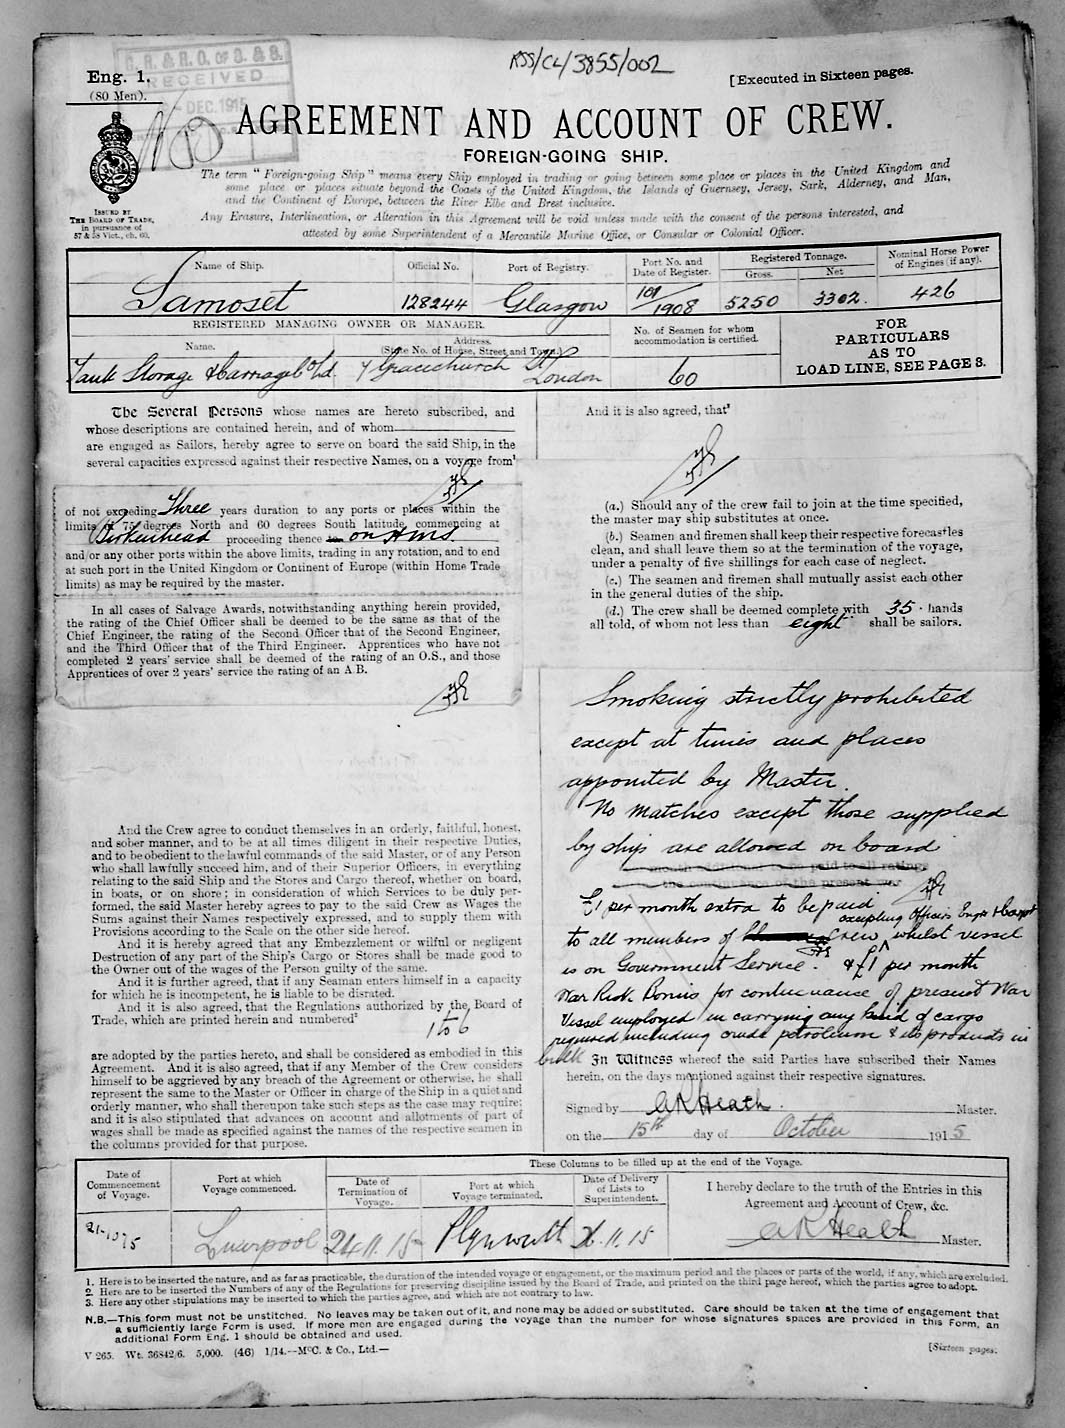 RSS/CL/3855/002
Eng. 1.
(80 Men).
C. R. & R. O. OF S. & S.
RECEIVED
DEC. 1915
[Executed in Sixteen pages.
AGREEMENT AND ACCOUNT OF CREW.
FOREIGN-GOING SHIP.
ISSUED BY
THE BOARD OF TRADE,
in pursuance of
57 & 58 Vict., ch. 60.
The term "Foreign-going Ship" means every Ship employed in trading or going between some place or places in the United Kingdom and
some place or places situate beyond the Coasts of the United Kingdom, the Islands of Guernsey, Jersey, Sark, Alderney, and Man,
and the Continent of Europe, between the River Elbe and Brest inclusive.
Any Erasure, Interlineation, or Alteration in this Agreement will be void unless made with the consent of the persons interested, and
attested by some Superintendent of a Mercantile Marine Office, or Consular or Colonial Officer.
Name of Ship. Official No. Port of Registry. Port No. and Date of Register. Registered Tonnage. Gross. Net Nominal Horse Power of Engines (if any).
Samoset 128244 Glasgow 101/1908 5250 3302. 426
REGISTERED MANAGING OWNER OR MANAGER.
Name. Address. (State No. of House, Street, and Town.) No. of Seamen for whom accommodation is certified.
Tank Storage & Carriage Co Ltd. 7 Gracechurch St London 60
FOR
PARTICULARS
AS TO
LOAD LINE, SEE PAGE 3.
The Several Persons whose names are hereto subscribed, and
whose descriptions are contained herein, and of whom
are engaged as Sailors, hereby agree to serve on board the said Ship, in the
several capacities expressed against their respective Names, on a voyage from¹
of not exceeding Three years duration to any ports or places within the
limits of 75 degrees North and 60 degrees South latitude, commencing at
Birkenhead proceeding thence on H.M.S.
and/or any other ports within the above limits, trading in any rotation, and to end
at such port in the United Kingdom or Continent of Europe (within Home Trade
limits) as may be required by the master.
In all cases of Salvage Awards, notwithstanding anything herein provided,
the rating of the Chief Officer shall be deemed to be the same as that of the
Chief Engineer, the rating of the Second Officer that of the Second Engineer,
and the Third Officer that of the Third Engineer. Apprentices who have not
completed 2 years' service shall be deemed of the rating of an O.S., and those
Apprentices of over 2 years' service the rating of an A.B.
And the Crew agree to conduct themselves in an orderly, faithful, honest,
and sober manner, and to be at all times diligent in their respective Duties,
and to be obedient to the lawful commands of the said Master, or of any Person
who shall lawfully succeed him, and of their Superior Officers, in everything
relating to the said Ship and the Stores and Cargo thereof, whether on board,
in boats, or on shore; in consideration of which Services to be duly per-
formed, the said Master hereby agrees to pay to the said Crew as Wages the
Sums against their Names respectively expressed, and to supply them with
Provisions according to the Scale on the other side hereof.
And it is hereby agreed that any Embezzlement or wilful or negligent
Destruction of any part of the Ship's Cargo or Stores shall be made good to
the Owner out of the wages of the Person guilty of the same.
And it is further agreed, that if any Seaman enters himself in a capacity
for which he is incompetent, he is liable to be disrated.
And it is also agreed, that the Regulations authorized by the Board of
Trade, which are printed herein and numbered²
1 to 6
are adopted by the parties hereto, and shall be considered as embodied in this
Agreement. And it is also agreed, that if any Member of the Crew considers
himself to be aggrieved by any breach of the Agreement or otherwise, he shall
represent the same to the Master or Officer in charge of the Ship in a quiet and
orderly manner, who shall thereupon take such steps as the case may require;
and it is also stipulated that advances on account and allotments of part of
wages shall be made as specified against the names of the respective seamen in
the columns provided for that purpose.
And it is also agreed, that³
(a.) Should any of the crew fail to join at the time specified,
the master may ship substitutes at once.
(b.) Seamen and firemen shall keep their respective forecastles
clean, and shall leave them so at the termination of the voyage,
under a penalty of five shillings for each case of neglect.
(c.) The seamen and firemen shall mutually assist each other
in the general duties of the ship.
(d.) The crew shall be deemed complete with 35 hands
all told, of whom not less than eight shall be sailors.
Smoking strictly prohibited
except at times and places
appointed by Master.
No matches except those supplied
by ship are allowed on board
month additional to be paid to all ratings
the continuance of the present war
£1 per month extra to be paid
excepting Officers Engrs & Carptr
to all members of crew whilst vessel
is on Government Service. & £1 per month
War Risk Bonus for continuance of present War
Vessel employed in carrying any kind of cargo
required including crude petroleum & its products in
bulk In Witness whereof the said Parties have subscribed their Names
herein, on the days mentioned against their respective signatures.
Signed by A R Heath Master.
on the 15th day of October 1915
These Columns to be filled up at the end of the Voyage.
Date of Commencement of Voyage. Port at which Voyage commenced. Date of Termination of Voyage. Port at which Voyage terminated. Date of Delivery of Lists to Superintendent.
I hereby declare to the truth of the Entries in this
Agreement and Account of Crew, &c.
21-10-15 Liverpool 24.11.15 Plymouth 26.11.15 A R Heath Master.
1. Here is to be inserted the nature, and as far as practicable, the duration of the intended voyage or engagement, or the maximum period and the places or parts of the world, if any, which are excluded.
2. Here are to be inserted the Numbers of any of the Regulations for preserving discipline issued by the Board of Trade, and printed on the third page hereof, which the parties agree to adopt.
3. Here any other stipulations may be inserted to which the parties agree, and which are not contrary to law.
N.B.—This form must not be unstitched. No leaves may be taken out of it, and none may be added or substituted. Care should be taken at the time of engagement that
a sufficiently large Form is used. If more men are engaged during the voyage than the number for whose signatures spaces are provided in this Form, an
additional Form Eng. 1 should be obtained and used.
V 265. Wt. 36842/6. 5,000. (46) 1/14.—McC. & Co., Ltd.—
[Sixteen pages.